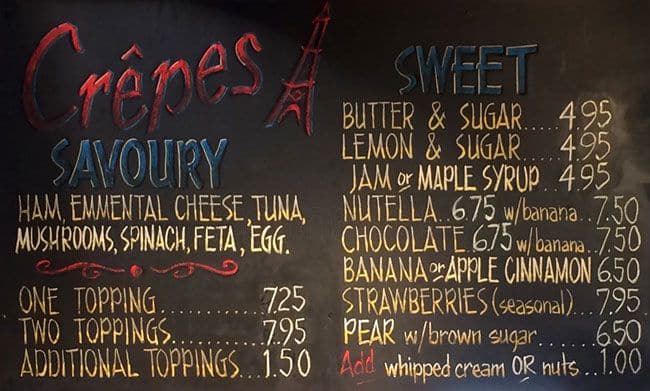 Crêpes
SAVOURY
HAM, EMMENTAL CHEESE, TUNA,
MUSHROOMS, SPINACH, FETA, EGG.
ONE TOPPING..........7.25
TWO TOPPINGS..........7.95
ADDITIONAL TOPPINGS...1.50
SWEET
BUTTER & SUGAR.....4.95
LEMON & SUGAR.....4.95
JAM or MAPLE SYRUP...4.95
NUTELLA..6.75 w/banana...7.50
CHOCOLATE 6.75 w/banana...7.50
BANANA or APPLE CINNAMON 6.50
STRAWBERRIES (seasonal)...7.95
PEAR w/brown sugar.......6.50
Add whipped cream OR nuts...1.00